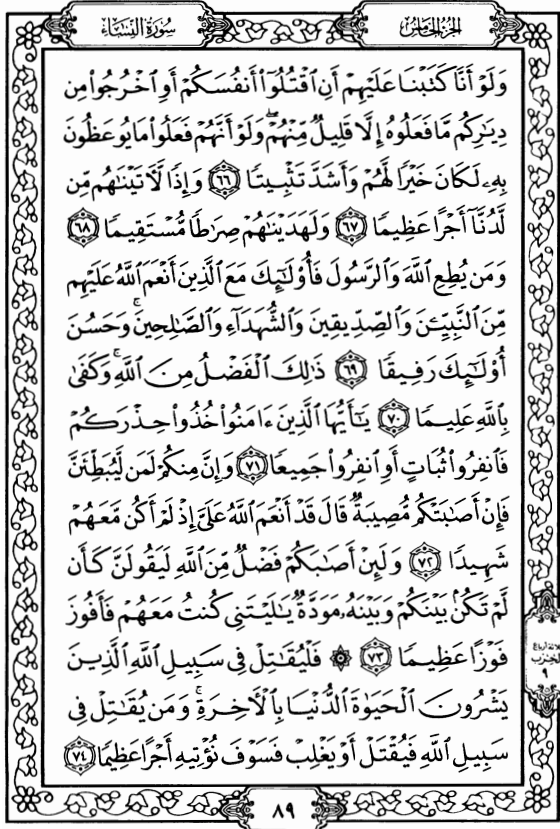 سُورَةُ النِّسَاءِ
الجُزْءُ الخَامِسُ
وَلَوْ أَنَّا كَتَبْنَا عَلَيْهِمْ أَنِ ٱقْتُلُوٓا۟ أَنفُسَكُمْ أَوِ ٱخْرُجُوا۟ مِن
دِيَٰرِكُم مَّا فَعَلُوهُ إِلَّا قَلِيلٌ مِّنْهُمْ ۖ وَلَوْ أَنَّهُمْ فَعَلُوا۟ مَا يُوعَظُونَ
بِهِۦ لَكَانَ خَيْرًا لَّهُمْ وَأَشَدَّ تَثْبِيتًا ٦٦ وَإِذًا لَّءَاتَيْنَٰهُم مِّن
لَّدُنَّآ أَجْرًا عَظِيمًا ٦٧ وَلَهَدَيْنَٰهُمْ صِرَٰطًا مُّسْتَقِيمًا ٦٨
وَمَن يُطِعِ ٱللَّهَ وَٱلرَّسُولَ فَأُو۟لَٰٓئِكَ مَعَ ٱلَّذِينَ أَنْعَمَ ٱللَّهُ عَلَيْهِم
مِّنَ ٱلنَّبِيِّـۧنَ وَٱلصِّدِّيقِينَ وَٱلشُّهَدَآءِ وَٱلصَّٰلِحِينَ ۚ وَحَسُنَ
أُو۟لَٰٓئِكَ رَفِيقًا ٦٩ ذَٰلِكَ ٱلْفَضْلُ مِنَ ٱللَّهِ ۚ وَكَفَىٰ
بِٱللَّهِ عَلِيمًا ٧٠ يَٰٓأَيُّهَا ٱلَّذِينَ ءَامَنُوا۟ خُذُوا۟ حِذْرَكُمْ
فَٱنفِرُوا۟ ثُبَاتٍ أَوِ ٱنفِرُوا۟ جَمِيعًا ٧١ وَإِنَّ مِنكُمْ لَمَن لَّيُبَطِّئَنَّ
فَإِنْ أَصَٰبَتْكُم مُّصِيبَةٌ قَالَ قَدْ أَنْعَمَ ٱللَّهُ عَلَىَّ إِذْ لَمْ أَكُن مَّعَهُمْ
شَهِيدًا ٧٢ وَلَئِنْ أَصَٰبَكُمْ فَضْلٌ مِّنَ ٱللَّهِ لَيَقُولَنَّ كَأَن
لَّمْ تَكُنۢ بَيْنَكُمْ وَبَيْنَهُۥ مَوَدَّةٌ يَٰلَيْتَنِى كُنتُ مَعَهُمْ فَأَفُوزَ
فَوْزًا عَظِيمًا ٧٣ ۞ فَلْيُقَٰتِلْ فِى سَبِيلِ ٱللَّهِ ٱلَّذِينَ
يَشْرُونَ ٱلْحَيَوٰةَ ٱلدُّنْيَا بِٱلْءَاخِرَةِ ۚ وَمَن يُقَٰتِلْ فِى
سَبِيلِ ٱللَّهِ فَيُقْتَلْ أَوْ يَغْلِبْ فَسَوْفَ نُؤْتِيهِ أَجْرًا عَظِيمًا ٧٤
ثلاثة أرباع
الحزب
٩
٨٩